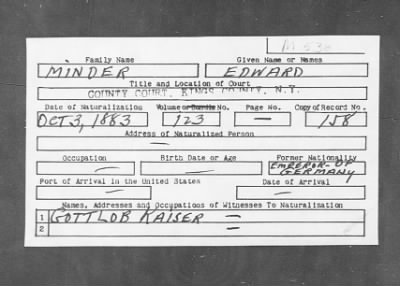 M 536
Family Name Given Name or Names
MINDER EDWARD
Title and Location of Court
COUNTY COURT, KINGS COUNTY, N.Y.
Date of Naturalization Volume or Bundle No. Page No. Copy of Record No.
OCT 3, 1883 123 — 158
Address of Naturalized Person
—
Occupation Birth Date or Age Former Nationality
— — EMPEROR OF
GERMANY
Port of Arrival in the United States Date of Arrival
— —
Names, Addresses and Occupations of Witnesses To Naturalization
1 GOTTLOB KAISER —
2 —